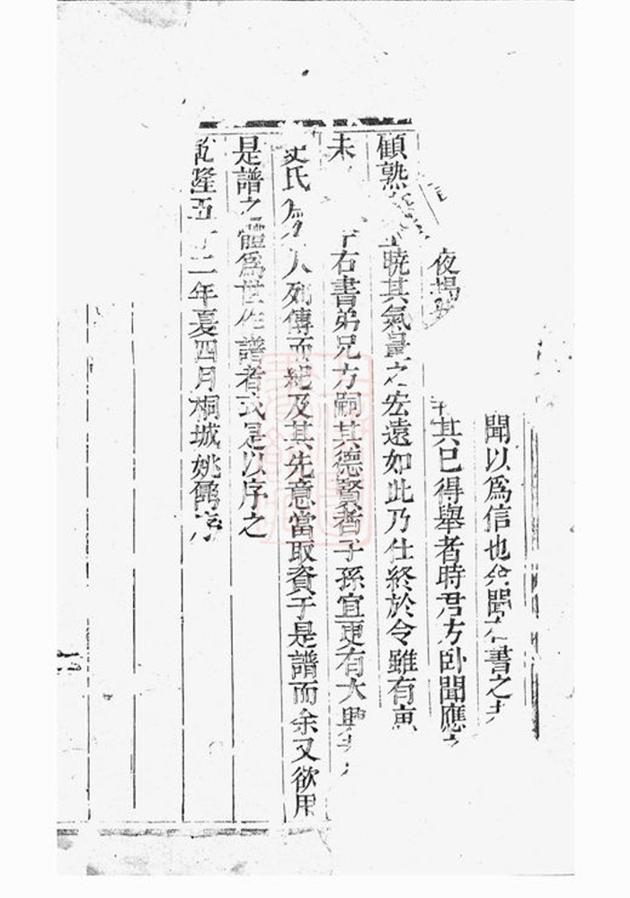 聞以爲信也 聞 書之
夜 其已得舉者時君方臥聞應
顧熟 曉其氣量之宏遠如此乃仕終於令雖有
未 右書弟兄方嗣其德賢者子孫宜更有大興
氏 人列傳而紀及其先意當取資于是譜而余又欲用
是譜之體爲世作譜者式是以序之
隆五 二年夏四月桐城姚鼐序